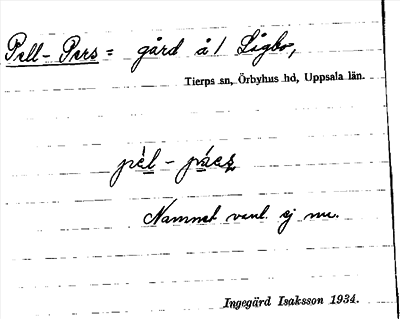 Pell-Pers = gård å 1 Lågbo,
Tierps sn, Örbyhus hd, Uppsala län.
Namnet vanl. ej nu.
Ingegärd Isaksson 1934.